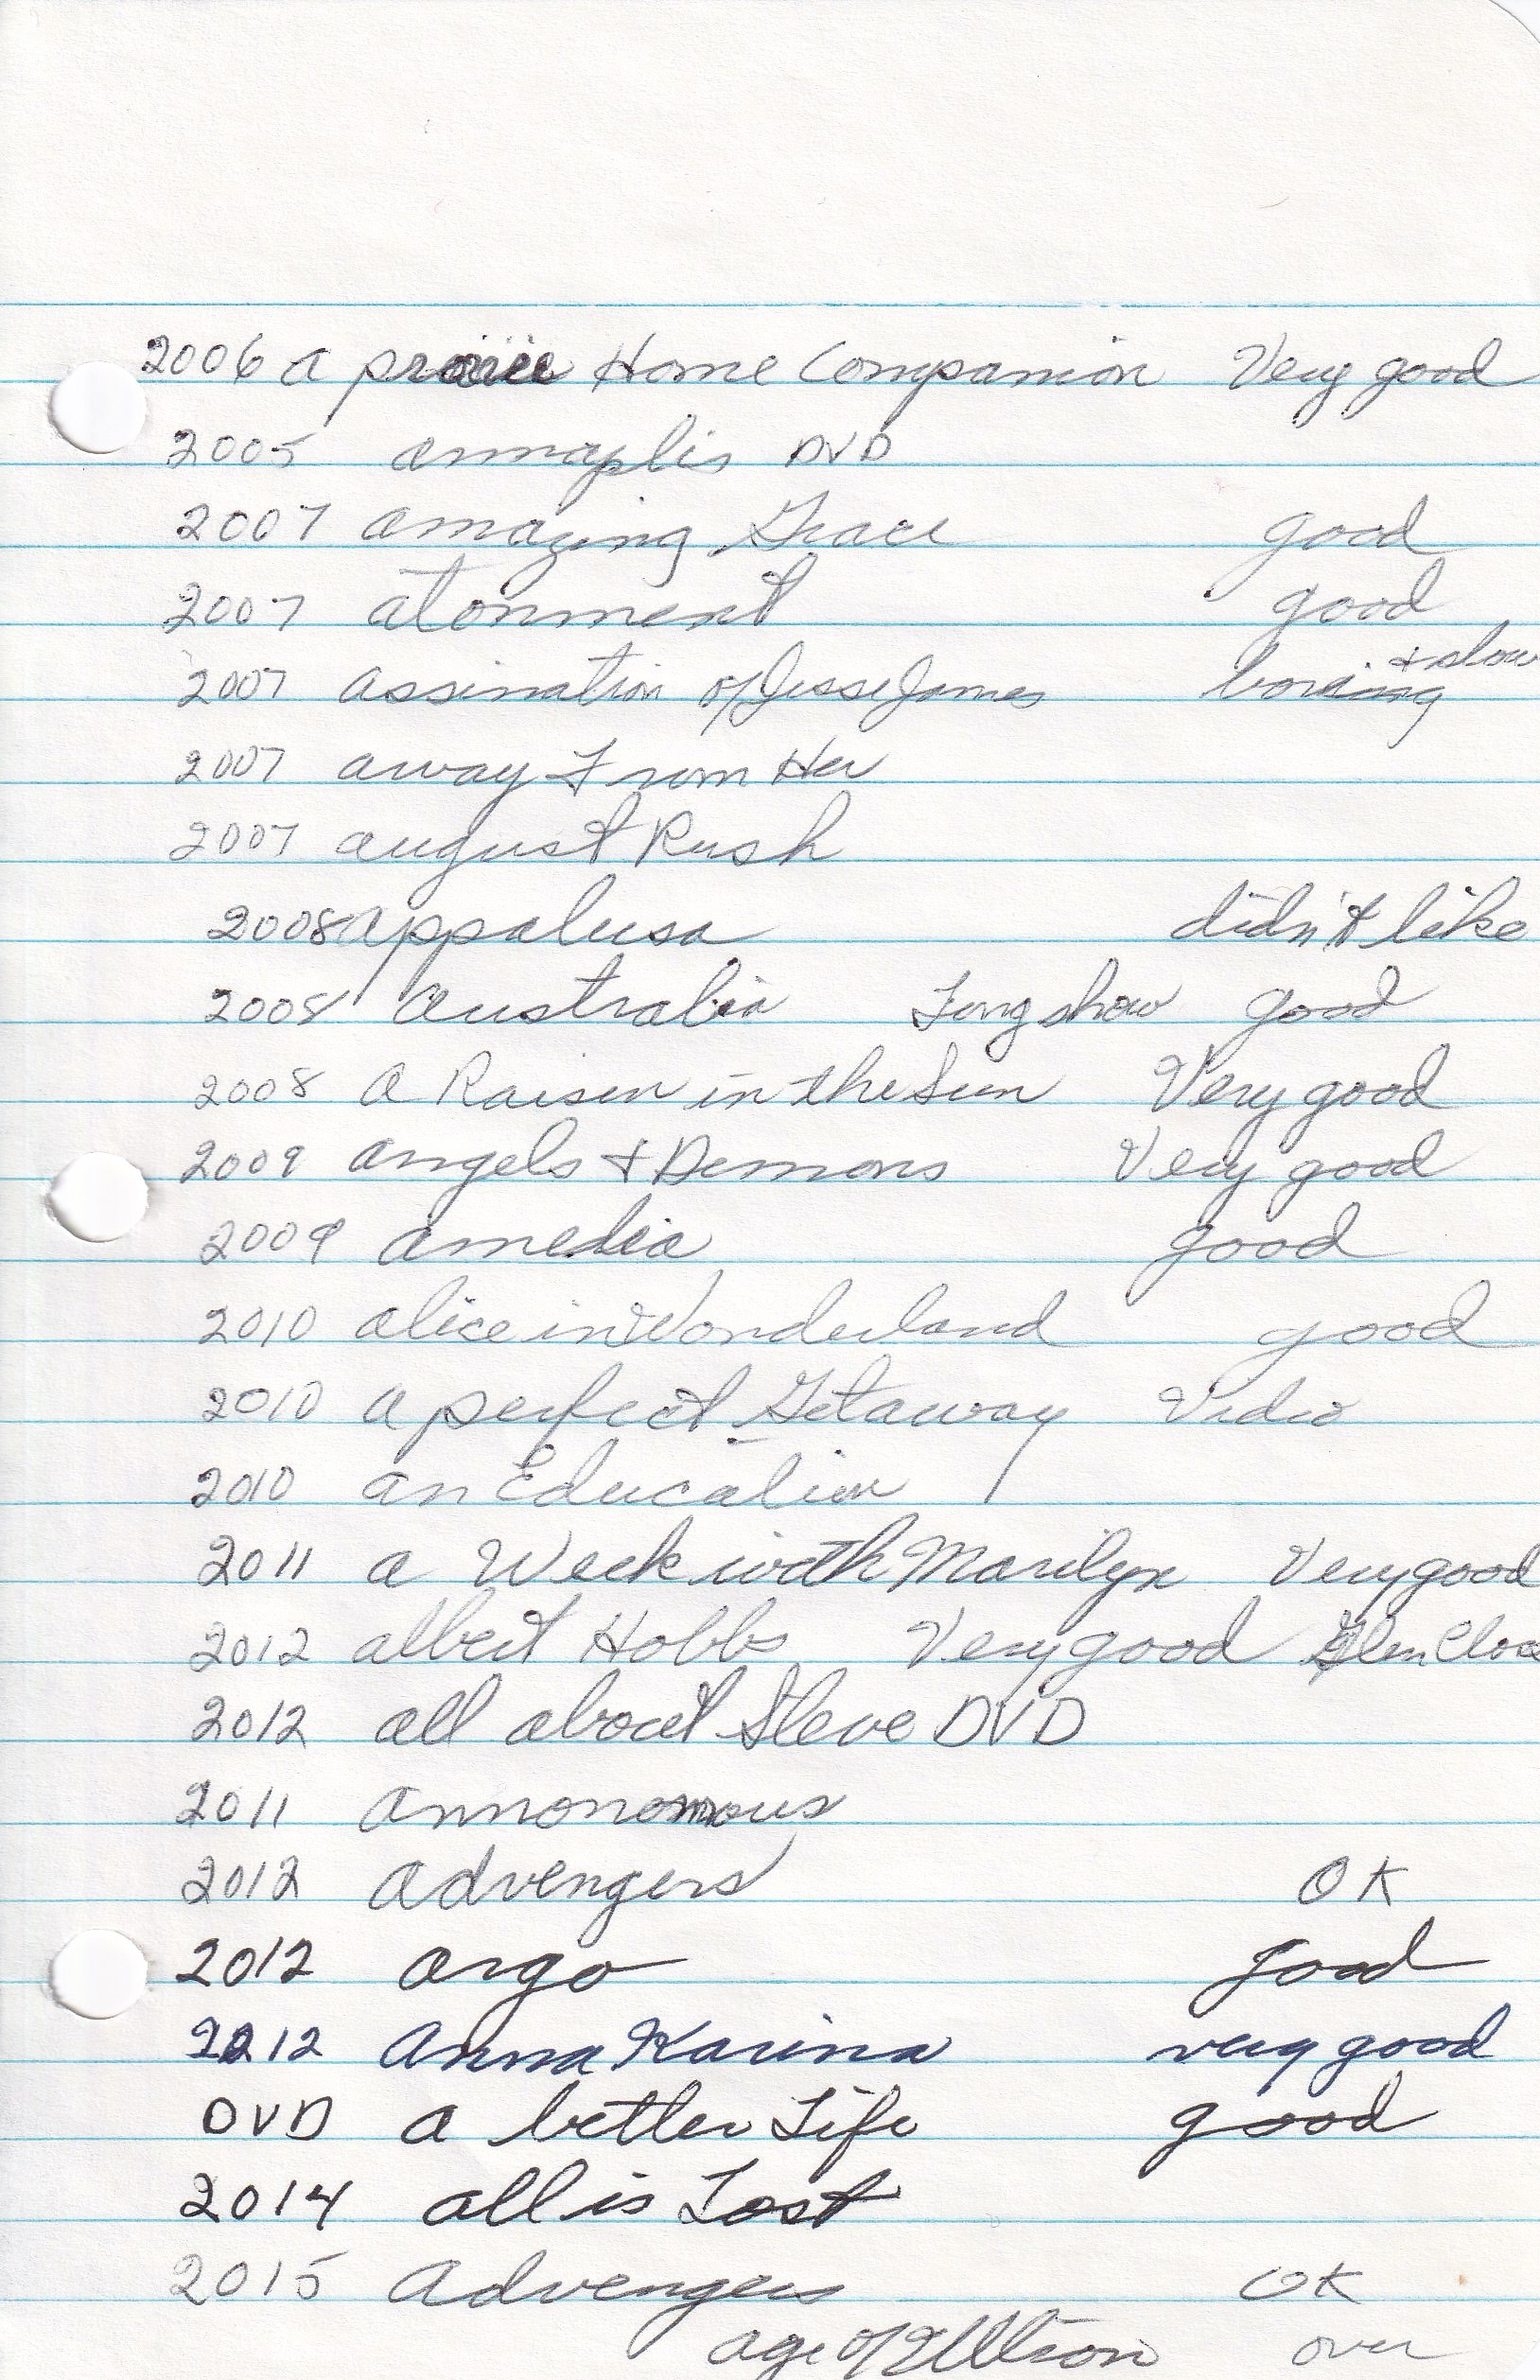 2006 a prairiee Home Companion Very good
2005 annaplis DVD
2007 amazing Grace good
2007 atonment good
2007 assination of Jesse James boring + slow
2007 away From Her
2007 august Rush
2008 appalusa didn't like
2008 australia Long show good
2008 a Raisen in the Sun Very good
2009 angels + Demons Very good
2009 amelia good
2010 alice in Wonderland good
2010 a perfect Getaway Video
2010 an Education
2011 a Week with Marilyn Very good
2012 albert Hobbs Very good Glen Close
2012 all about Steve DVD
2011 annonomous
2012 advengers OK
2012 argo good
2012 Anna Karina very good
DVD a better Life good
2014 all is Lost
2015 advengers OK
age of Ulltron over